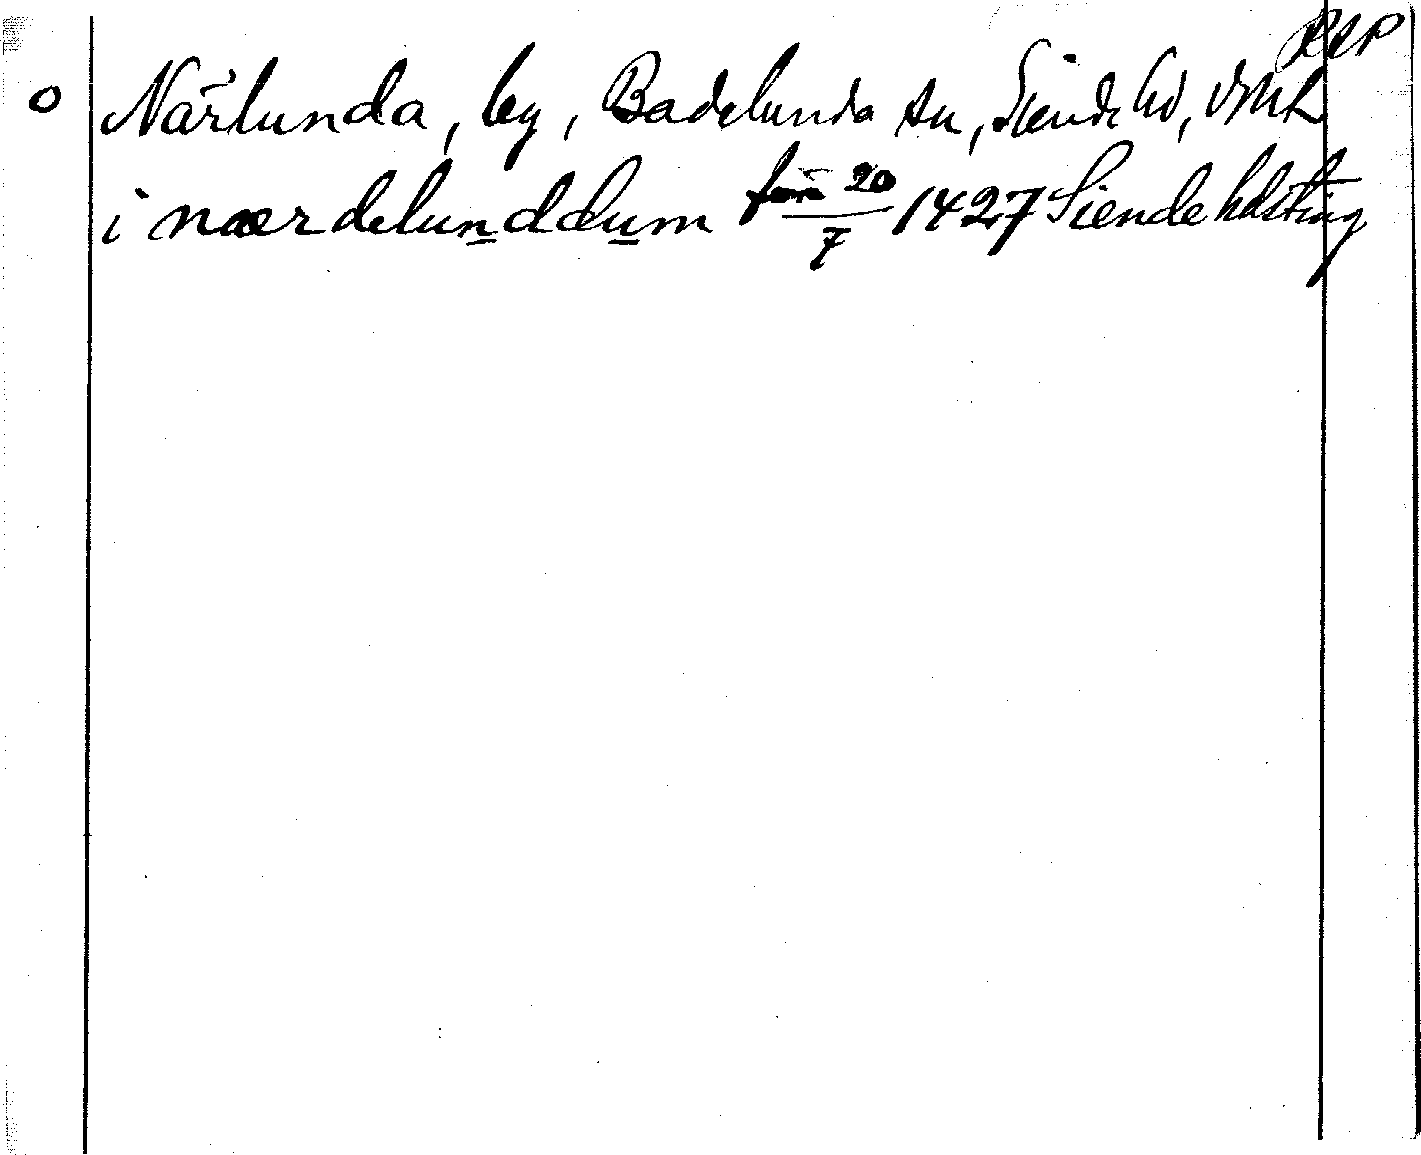 RAP
o Närlunda, by, Badelunda sn, Siende hd, Vstml
i nærdelunddæum före 20/7 1427 Siende hdsting